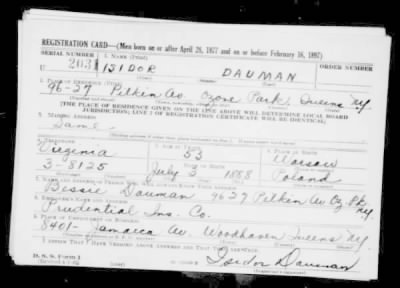 REGISTRATION CARD—(Men born on or after April 28, 1877 and on or before February 16, 1897)
SERIAL NUMBER 1. NAME (Print)
U 2031 ISIDOR DAUMAN
2. PLACE OF RESIDENCE (Print)
96-27 Pitkin Av. Ozone Park, Queens NY.
(Number and street) (Town, township, village, or city) (County) (State)
[THE PLACE OF RESIDENCE GIVEN ON THE LINE ABOVE WILL DETERMINE LOCAL BOARD
JURISDICTION; LINE 2 OF REGISTRATION CERTIFICATE WILL BE IDENTICAL]
3. MAILING ADDRESS
Same
4. TELEPHONE 5. AGE IN YEARS 6. PLACE OF BIRTH
Virginia 53 Warsaw
DATE OF BIRTH
3-8125 July 3 1888 Poland
7. NAME AND ADDRESS OF PERSON WHO WILL ALWAYS KNOW YOUR ADDRESS
Bessie Dauman 9627 Pitkin Av Oz Pk NY
8. EMPLOYER'S NAME AND ADDRESS
Prudential Ins. Co.
9. PLACE OF EMPLOYMENT OR BUSINESS
8401- Jamaica Av. Woodhaven Queens NY
I AFFIRM THAT I HAVE VERIFIED ABOVE ANSWERS AND THAT THEY ARE TRUE.
D. S. S. Form 1 Isidor Dauman